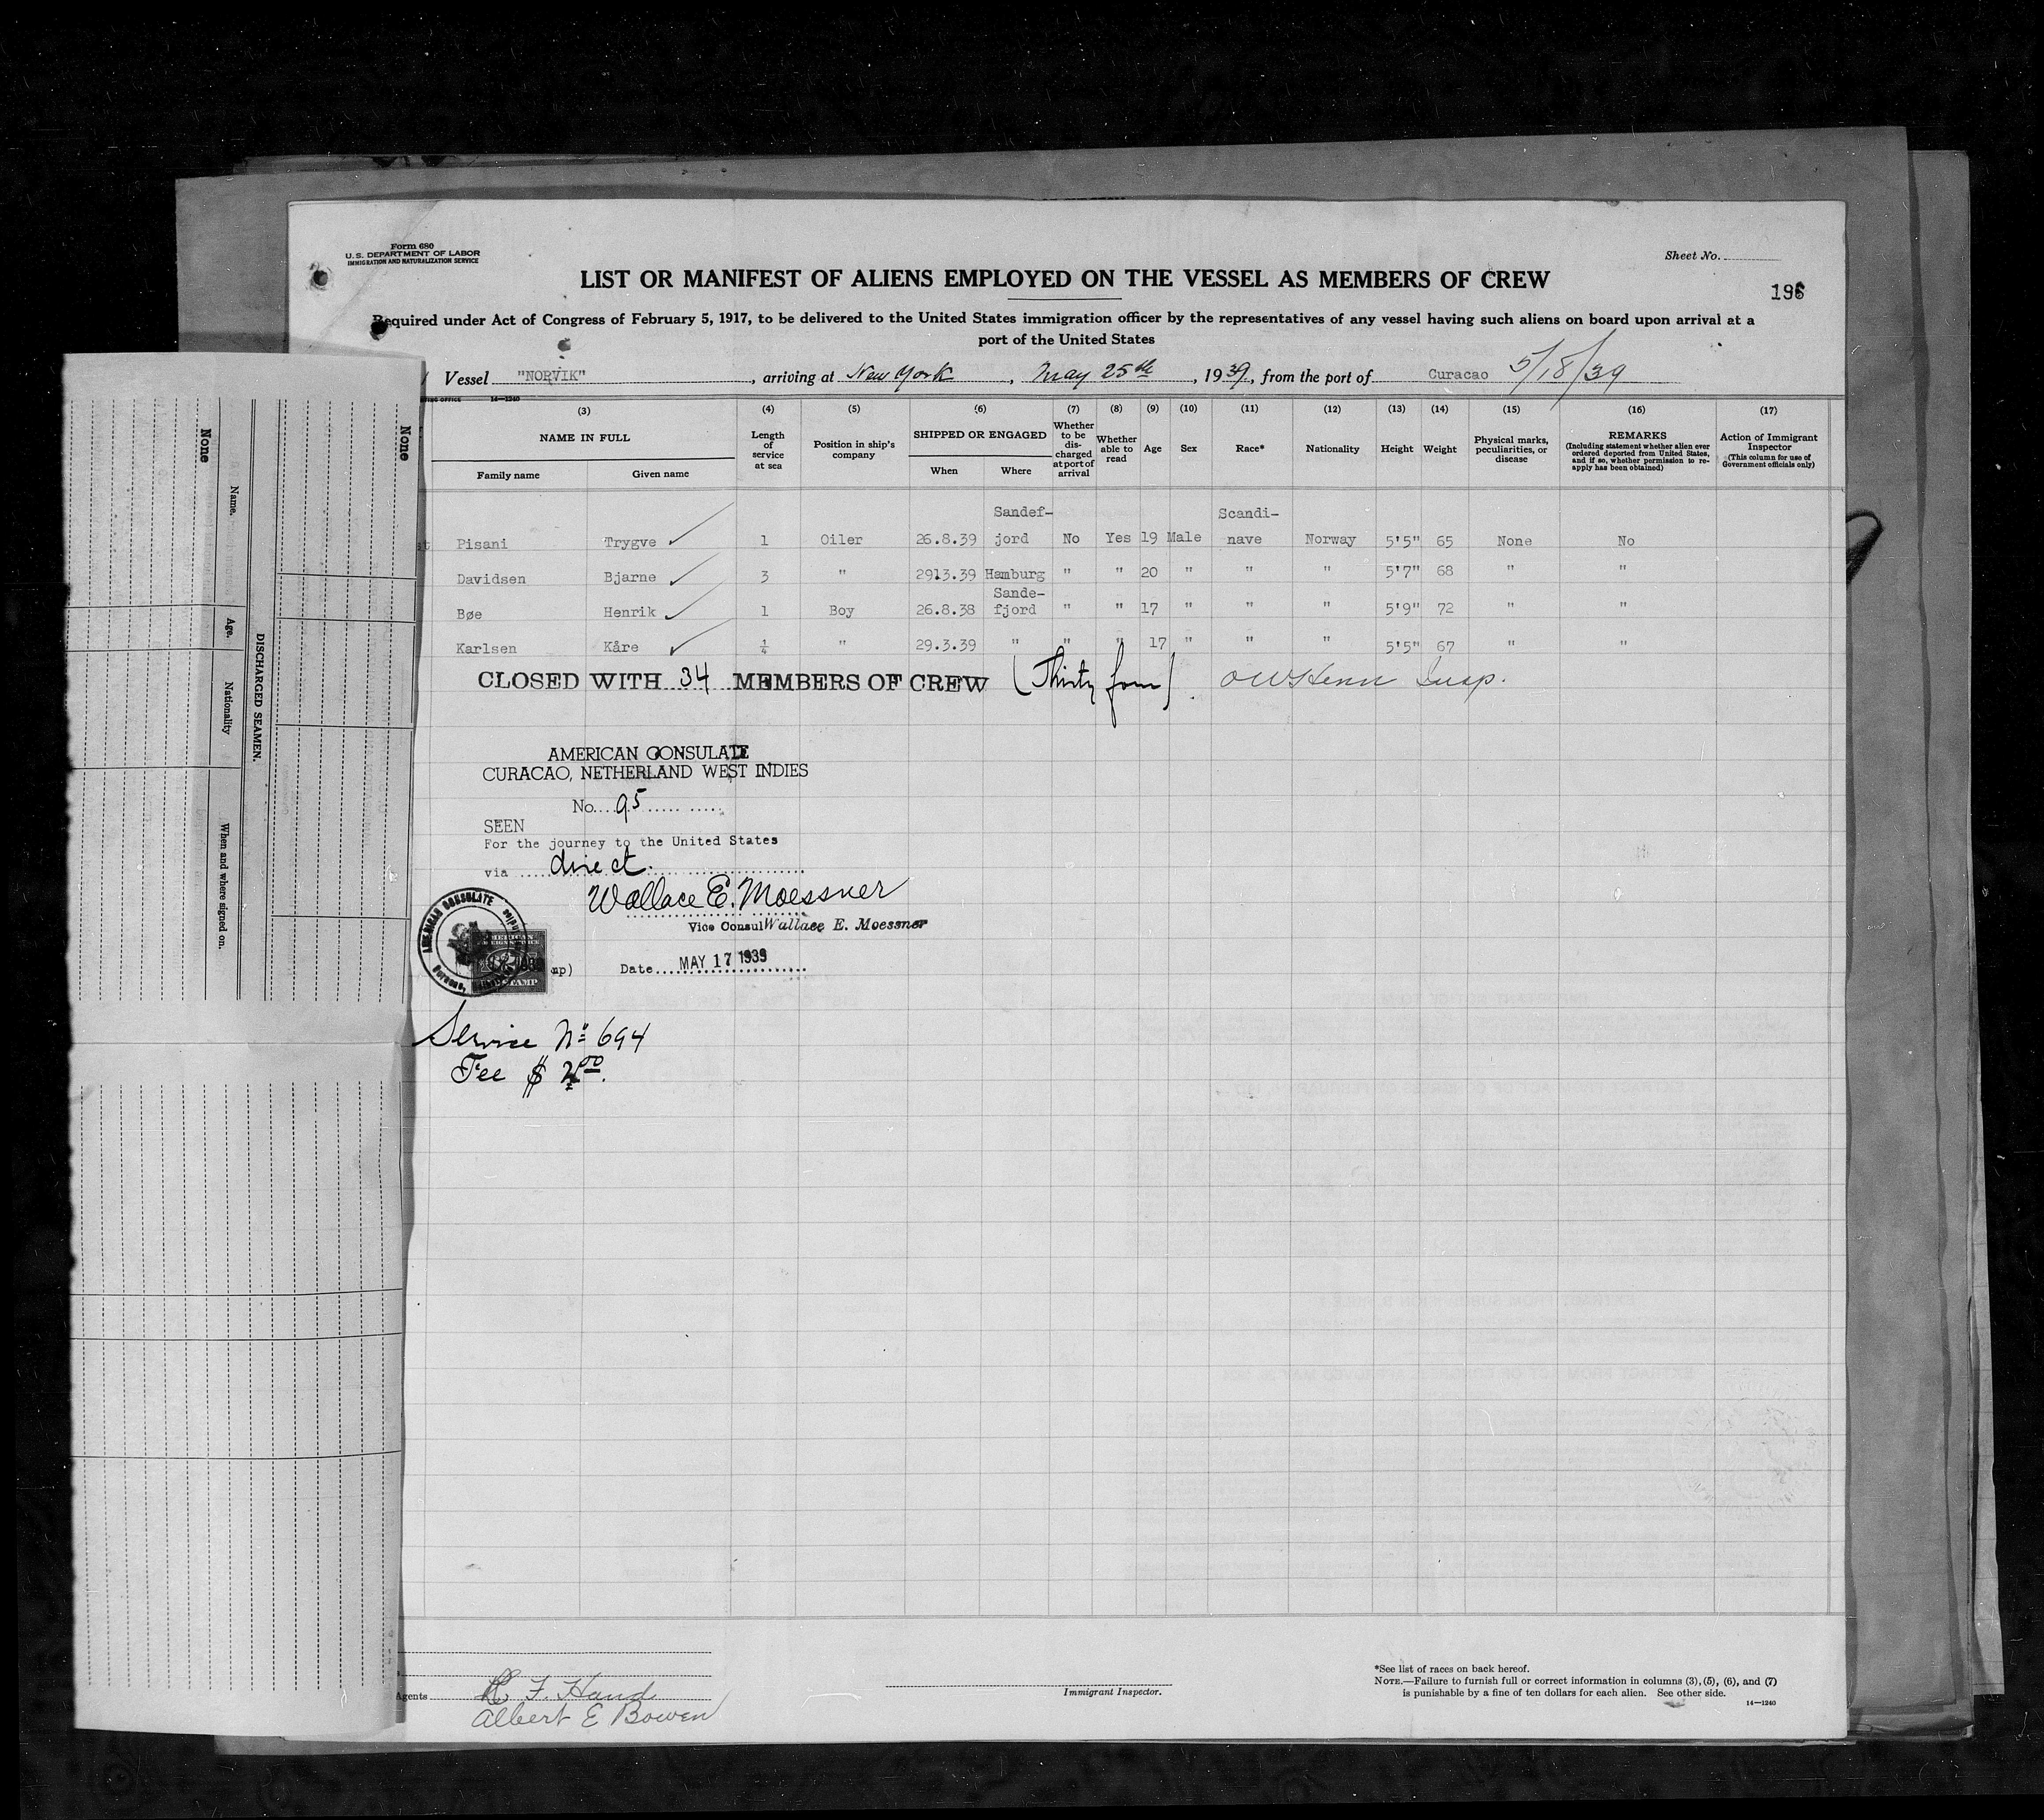 Form 680
U.S. DEPARTMENT OF LABOR
IMMIGRATION AND NATURALIZATION SERVICE
Sheet No.
LIST OR MANIFEST OF ALIENS EMPLOYED ON THE VESSEL AS MEMBERS OF CREW
Required under Act of Congress of February 5, 1917, to be delivered to the United States immigration officer by the representatives of any vessel having such aliens on board upon arrival at a
port of the United States
Vessel "NORVIK", arriving at New York, May 25th, 1939, from the port of Curacao 5/18/39
14—1240
(3) (4) (5) (6) (7) (8) (9) (10) (11) (12) (13) (14) (15) (16) (17)
NAME IN FULL
Family name Given name
Length of service at sea
Position in ship's company
SHIPPED OR ENGAGED
When Where
Whether to be discharged at port of arrival
Whether able to read
Age
Sex
Race*
Nationality
Height
Weight
Physical marks, peculiarities, or disease
REMARKS
(Including statement whether alien ever ordered deported from United States, and if so, whether permission to re-apply has been obtained)
Action of Immigrant Inspector
(This column for use of Government officials only)
Pisani Trygve 1 Oiler 26.8.39 Sandef-jord No Yes 19 Male Scandi-nave Norway 5'5" 65 None No
Davidsen Bjarne 3 " 2913.39 Hamburg " " 20 " " " 5'7" 68 " "
Bøe Henrik 1 Boy 26.8.38 Sande-fjord " " 17 " " " 5'9" 72 " "
Karlsen Kåre ¼ " 29.3.39 " " " 17 " " " 5'5" 67 " "
CLOSED WITH 34 MEMBERS OF CREW (Thirty four) Insp.
AMERICAN CONSULATE
CURACAO, NETHERLAND WEST INDIES
No. 95
SEEN
For the journey to the United States
via direct.
Wallace E. Moessner
Vice Consul Wallace E. Moessner
AMERICAN CONSULATE
STAMP
Date MAY 17 1939
Service Nº 694
Fee $
None
None
Name.
Age.
Nationality
When and where signed on.
DISCHARGED SEAMEN.
Agents
F. Hand
Albert E Bowen
Immigrant Inspector.
*See list of races on back hereof.
NOTE.—Failure to furnish full or correct information in columns (3), (5), (6), and (7)
is punishable by a fine of ten dollars for each alien. See other side.
14—1240